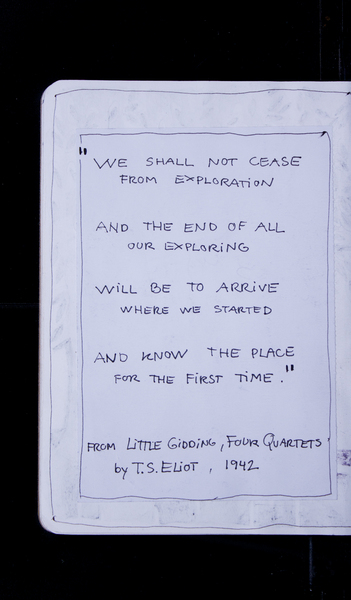 "WE SHALL NOT CEASE
FROM EXPLORATION
AND THE END OF ALL
OUR EXPLORING
WILL BE TO ARRIVE
WHERE WE STARTED
AND KNOW THE PLACE
FOR THE FIRST TIME."
FROM LITTLE GIDDING, FOUR QUARTETS
by T.S. ELIOT, 1942